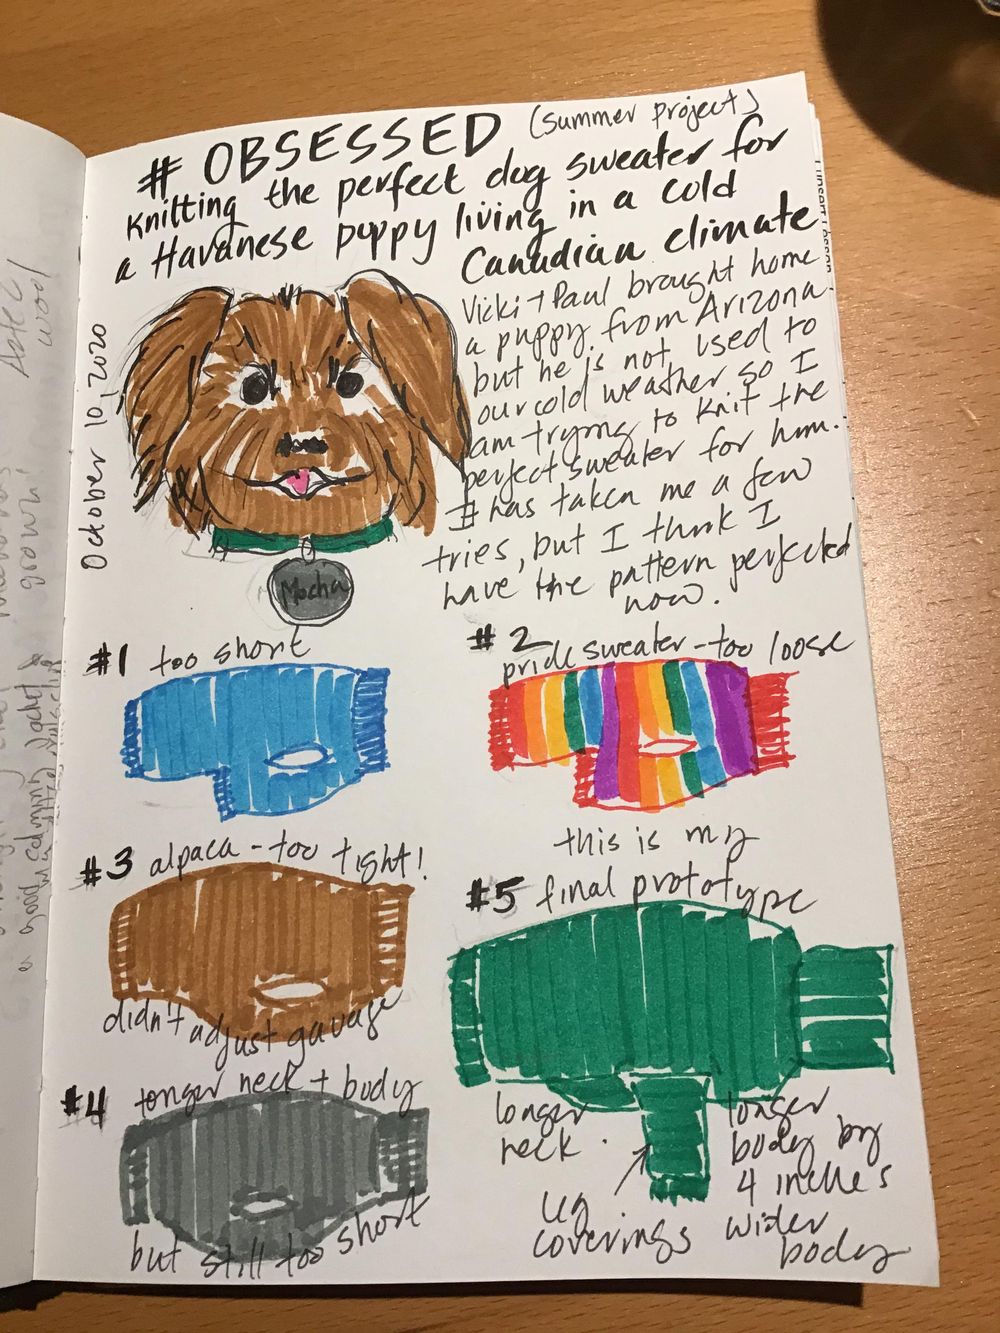 # OBSESSED (summer project)
Knitting the perfect dog sweater for
a Havanese puppy living in a cold
Canadian climate
Vicki + Paul brought home
a puppy from Arizona
but he is not used to
our cold weather so I
am trying to knit the
perfect sweater for him.
It has taken me a few
tries, but I think I
have the pattern perfected
now.
October 10, 2020
Mocha
#1 too short
#2
pride sweater - too loose
#3 alpaca - too tight!
didn't adjust gauage
#4 longer neck + body
but still too short
this is my
#5 final prototype
longer
neck.
leg
coverings
longer
body by
4 inches
wider
body